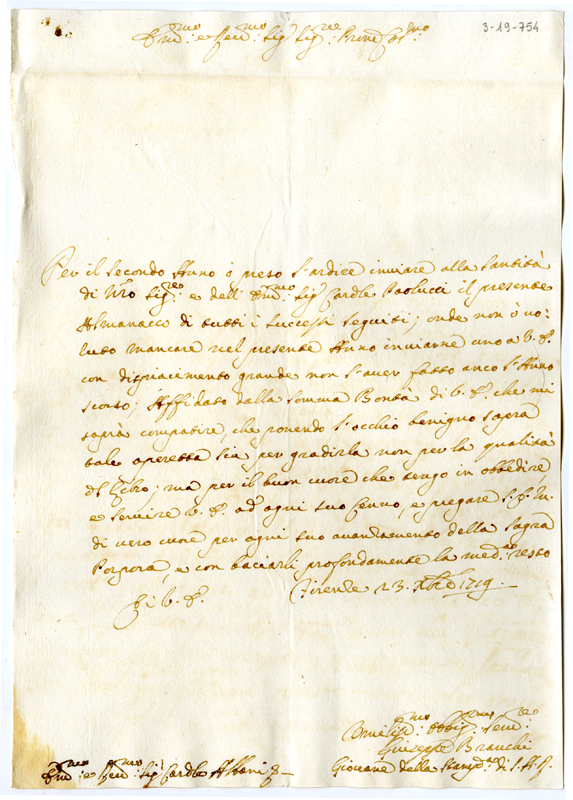 3-19-754
Em.mo e Rev.mo Sig.r Sig.re Pron Col.mo
Per il secondo Anno ò preso l'ardire inviare alla Santità
di Nro Sig.re e dell' Em.mo Sig.r Cardle Paolucci il presente
Almanacco di tutti i successi seguiti; onde non ò vo-
luto mancare nel presente Anno inviarne uno a V. E.
con dispiacimento grande non l'aver fatto anco l'Anno
scorso; Affidato dalla somma Bontà di V. E. che mi
saprà compatire, che ponendo l'occhio benigno sopra
tale operetta sia per gradirla non per la qualità
del Libro; ma per il buon cuore che tengo in obbedire
e servire V. E. ad ogni suo Cenno, e pregare S. D. M.
di vero cuore per ogni suo avanzamento della Sagra
Porpora, e con baciarli profondamente la med.ma resto
Di V. E. Firenze 23. Xbre 1719.
Umiliss.mo Obblig.mo Serv.re
Giuseppe Bianchi
Em.mo e Rev.mo Sig.r Cardle Albani Giovane della Stamp.a di S. A. R.